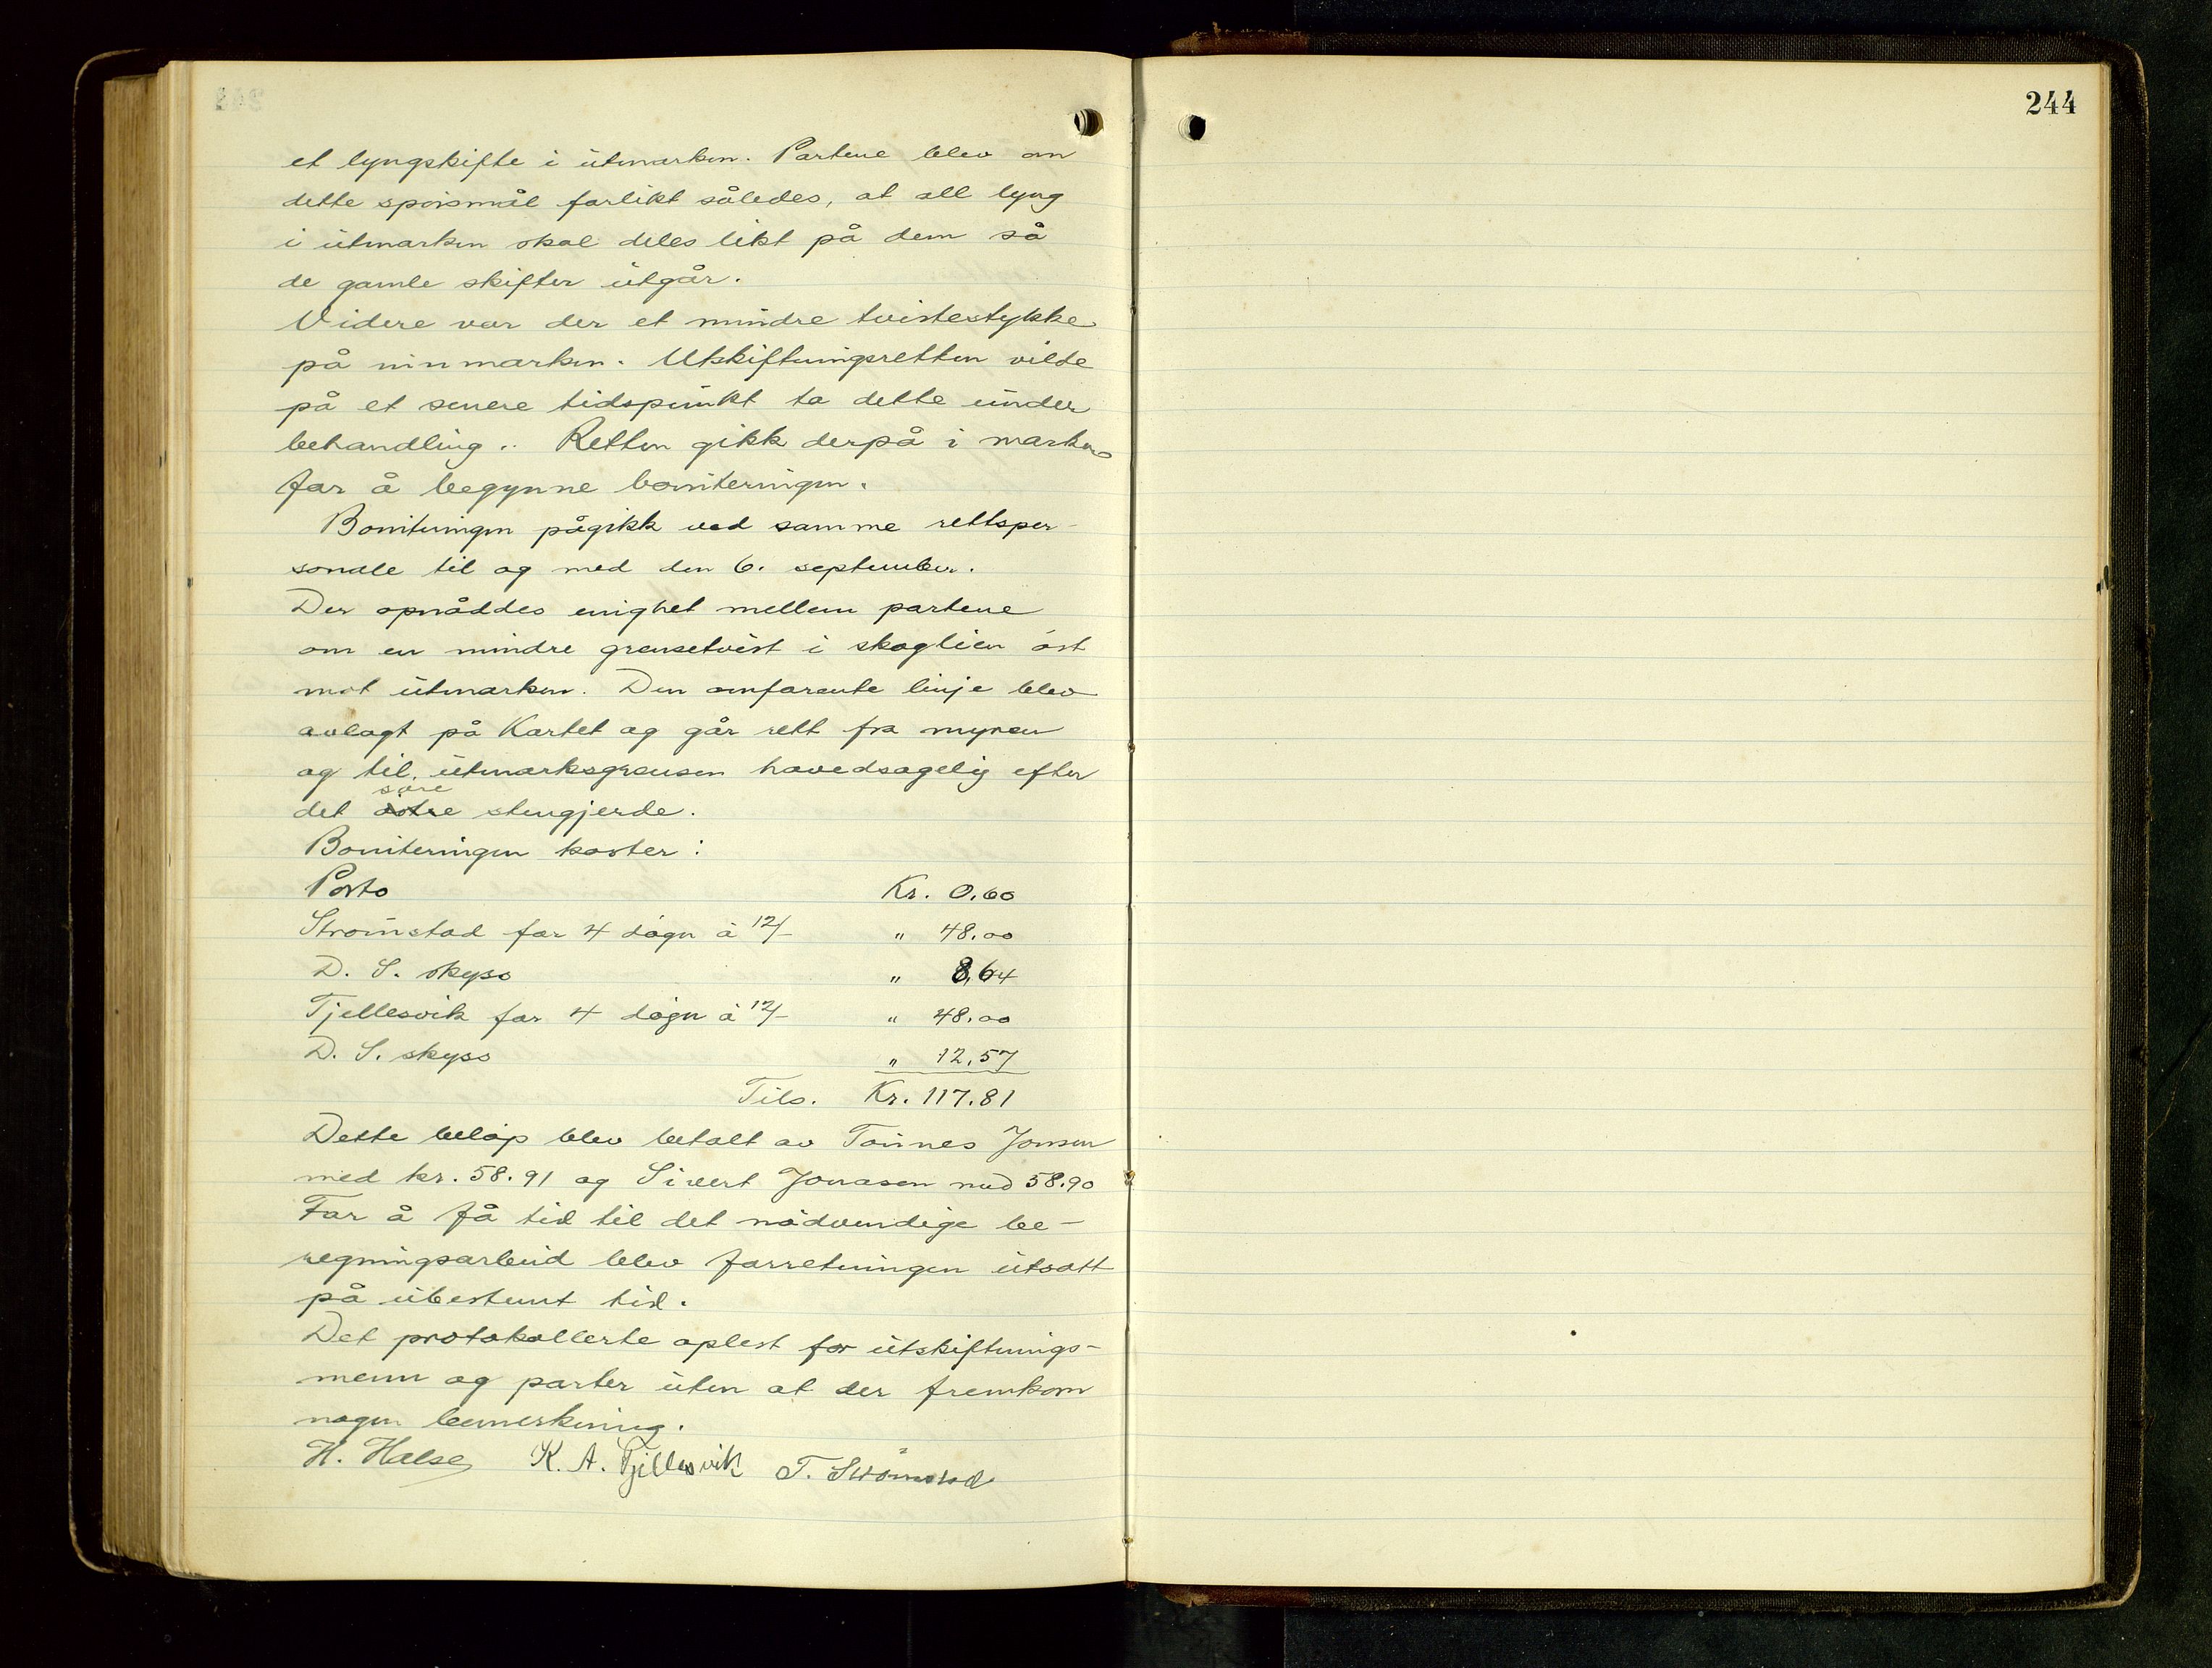 244
et lyngskifte i utmarken. Partene blev om
dette spörsmål forlikt således, at all lyng
i utmarken skal deles likt på dem så
de gamle skifter utgår.
Videre var der et mindre tvistestykke
på innmarken. Utskiftningsretten vilde
på et senere tidspunkt ta dette under
behandling. Retten gikk derpå i marken
for å begynne boniteringen.
Boniteringen pågikk ved samme rettsper-
sonale til og med den 6. september.
Der opnåddes enighet mellem partene
om en mindre grensetvist i skoglien öst
mot utmarken. Den omforente linje blev
avlagt på Kartet og går rett fra myren
og til utmarksgrensen hovedsagelig efter
söre
det östre stengjerde.
Boniteringen koster:
Porto Kr. 0.60
Strömstad for 4 dögn à 12/- " 48.00
D. S. skyss " 8,64
Tjellesvik for 4 dögn à 12/- " 48.00
D. S. skyss " 12.57
Tils. Kr. 117.81
Dette belöp blev betalt av Tönnes Jonsen
med kr. 58.91 og Sivert Jonasen med 58.90
For å få tid til det nödvendige be-
regningsarbeid blev forretningen utsatt
på ubestemt tid.
Det protokollerte oplest for utskiftnings-
menn og parter uten at der fremkom
nogen bemerkning.
H. Halse K. A. Tjellesvik T. Strömstad